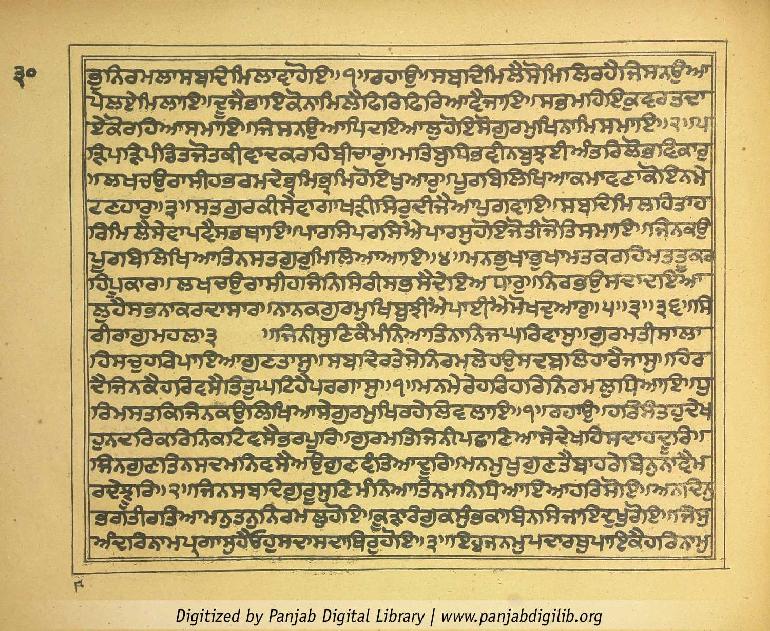 ੩੦
ਭੁ ਨਿਰਮਲਾ ਸਬਦਿ ਮਿਲਾਵਾ ਹੋਇ ॥੧॥ ਰਹਾਉ ॥ ਸਬਦਿ ਮਿਲੈ ਸੋ ਮਿਲਿ ਰਹੈ ਜਿਸ ਨਉ ਆ
ਪੇ ਲਏ ਮਿਲਾਇ ॥ ਦੂਜੈ ਭਾਇ ਕੋ ਨਾ ਮਿਲੈ ਫਿਰਿ ਫਿਰਿ ਆਵੈ ਜਾਇ ॥ ਸਭ ਮਹਿ ਇਕੁ ਵਰਤਦਾ
ਏਕੋ ਰਹਿਆ ਸਮਾਇ ॥ ਜਿਸ ਨਉ ਆਪਿ ਦਇਆਲੁ ਹੋਇ ਸੋ ਗੁਰਮੁਖਿ ਨਾਮਿ ਸਮਾਇ ॥੨॥ ਪ
ੜਿ ਪੜਿ ਪੰਡਿਤ ਜੋਤਕੀ ਵਾਦ ਕਰਹਿ ਬੀਚਾਰੁ ॥ ਮਤਿ ਬੁਧਿ ਭਵੀ ਨ ਬੁਝਈ ਅੰਤਰਿ ਲੋਭ ਵਿਕਾਰੁ
॥ ਲਖ ਚਉਰਾਸੀਹ ਭਰਮਦੇ ਭ੍ਰਮਿ ਭ੍ਰਮਿ ਹੋਇ ਖੁਆਰੁ ॥ ਪੂਰਬਿ ਲਿਖਿਆ ਕਮਾਵਣਾ ਕੋਇ ਨ ਮੇ
ਟਣਹਾਰੁ ॥੩॥ ਸਤਗੁਰ ਕੀ ਸੇਵਾ ਗਾਖੜੀ ਸਿਰੁ ਦੀਜੈ ਆਪੁ ਗਵਾਇ ॥ ਸਬਦਿ ਮਿਲਹਿ ਤਾ ਹ
ਰਿ ਮਿਲੈ ਸੇਵਾ ਪਵੈ ਸਭ ਥਾਇ ॥ ਪਾਰਸਿ ਪਰਸਿਐ ਪਾਰਸੁ ਹੋਇ ਜੋਤੀ ਜੋਤਿ ਸਮਾਇ ॥ ਜਿਨ ਕਉ
ਪੂਰਬਿ ਲਿਖਿਆ ਤਿਨ ਸਤਗੁਰੁ ਮਿਲਿਆ ਆਇ ॥੪॥ ਮਨ ਭੁਖਾ ਭੁਖਾ ਮਤ ਕਰਹਿ ਮਤ ਤੂ ਕਰ
ਹਿ ਪੂਕਾਰ ॥ ਲਖ ਚਉਰਾਸੀਹ ਜਿਨਿ ਸਿਰੀ ਸਭਸੈ ਦੇਇ ਅਧਾਰੁ ॥ ਨਿਰਭਉ ਸਦਾ ਦਇਆ
ਲੁ ਹੈ ਸਭਨਾ ਕਰਦਾ ਸਾਰ ॥ ਨਾਨਕ ਗੁਰਮੁਖਿ ਬੁਝੀਐ ਪਾਈਐ ਮੋਖ ਦੁਆਰੁ ॥੫॥੩॥੩੬॥ ਸਿ
ਰੀਰਾਗੁ ਮਹਲਾ ੩ ॥ ਜਿਨੀ ਸੁਣਿ ਕੈ ਮੰਨਿਆ ਤਿਨਾ ਨਿਜ ਘਰਿ ਵਾਸੁ ॥ ਗੁਰਮਤੀ ਸਾਲਾ
ਹਿ ਸਚੁ ਹਰਿ ਪਾਇਆ ਗੁਣਤਾਸੁ ॥ ਸਬਦਿ ਰਤੇ ਸੇ ਨਿਰਮਲੇ ਹਉ ਸਦ ਬਲਿਹਾਰੈ ਜਾਸੁ ॥ ਹਿਰ
ਦੈ ਜਿਨ ਕੈ ਹਰਿ ਵਸੈ ਤਿਤੁ ਘਟਿ ਹੈ ਪਰਗਾਸੁ ॥੧॥ ਮਨ ਮੇਰੇ ਹਰਿ ਹਰਿ ਨਿਰਮਲੁ ਧਿਆਇ ॥ ਧੁ
ਰਿ ਮਸਤਕਿ ਜਿਨ ਕਉ ਲਿਖਿਆ ਸੇ ਗੁਰਮੁਖਿ ਰਹੇ ਲਿਵ ਲਾਇ ॥੧॥ ਰਹਾਉ ॥ ਹਰਿ ਸੰਤਹੁ ਦੇਖ
ਹੁ ਨਦਰਿ ਕਰਿ ਨਿਕਟਿ ਵਸੈ ਭਰਪੂਰਿ ॥ ਗੁਰਮਤਿ ਜਿਨੀ ਪਛਾਣਿਆ ਸੇ ਦੇਖਹਿ ਸਦਾ ਹਦੂਰਿ ॥
ਜਿਨ ਗੁਣ ਤਿਨ ਸਦ ਮਨਿ ਵਸੈ ਅਉਗੁਣਵੰਤਿਆ ਦੂਰਿ ॥ ਮਨਮੁਖ ਗੁਣ ਤੈ ਬਾਹਰੇ ਬਿਨੁ ਨਾਵੈ ਮ
ਰਦੇ ਝੂਰਿ ॥੨॥ ਜਿਨ ਸਬਦਿ ਗੁਰੂ ਸੁਣਿ ਮੰਨਿਆ ਤਿਨ ਮਨਿ ਧਿਆਇਆ ਹਰਿ ਸੋਇ ॥ ਅਨਦਿਨੁ
ਭਗਤੀ ਰਤਿਆ ਮਨੁ ਤਨੁ ਨਿਰਮਲੁ ਹੋਇ ॥ ਕੂੜਾ ਰੰਗੁ ਕਸੁੰਭ ਕਾ ਬਿਨਸਿ ਜਾਇ ਦੁਖੁ ਰੋਇ ॥ ਜਿਸੁ
ਅੰਦਰਿ ਨਾਮ ਪ੍ਰਗਾਸੁ ਹੈ ਓਹੁ ਸਦਾ ਸਦਾ ਥਿਰੁ ਹੋਇ ॥੩॥ ਇਹੁ ਜਨਮੁ ਪਦਾਰਥੁ ਪਾਇ ਕੈ ਹਰਿ ਨਾਮੁ
Digitized by Panjab Digital Library | www.panjabdigilib.org